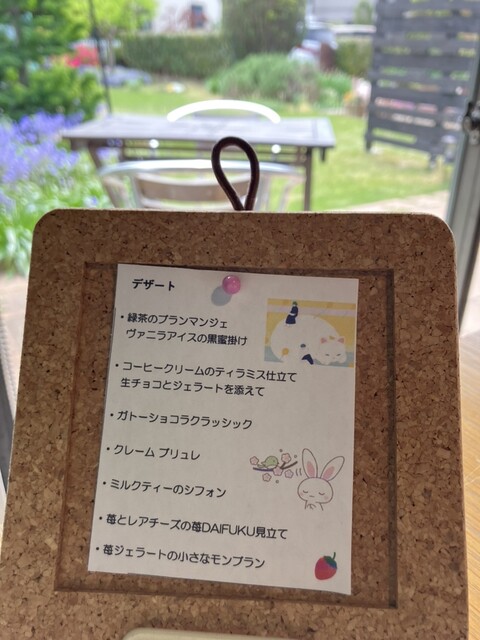 デザート
・緑茶のブランマンジェ
ヴァニラアイスの黒蜜掛け
・コーヒークリームのティラミス仕立て
生チョコとジェラートを添えて
・ガトーショコラクラッシック
・クレーム ブリュレ
・ミルクティーのシフォン
・苺とレアチーズの苺DAIFUKU見立て
・苺ジェラートの小さなモンブラン